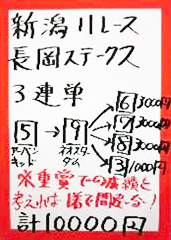 新潟11レース
長岡ステークス
3連単
6 3000円
7 3000円
5 → 9
8 3000円
アーバンキッド
ネオスターダム
3 1000円
※重賞での成績と
考えれば
計10000円